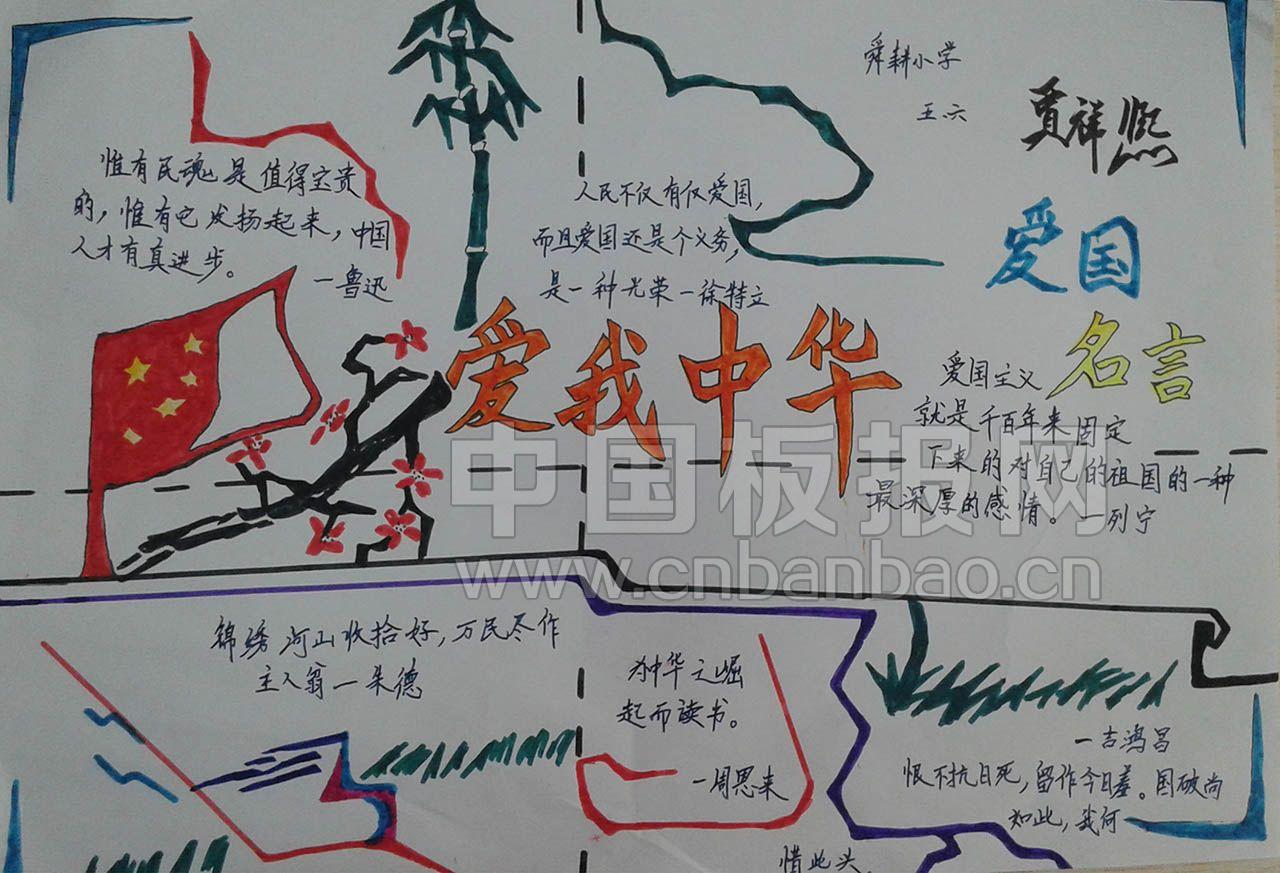 舜耕小学
王六
贾祥熙
惟有民魂是值得宝贵
的，惟有它发扬起来，中国
人才有真进步。
—鲁迅
人民不仅有仅爱国，
而且爱国还是个义务，
是一种光荣—徐特立
爱国
名言
爱我中华
爱国主义
就是千百年来固定
下来的对自己的祖国的一种
最深厚的感情。—列宁
中国板报网
www.cnbanbao.cn
锦绣河山收拾好，万民尽作
主人翁—朱德
为中华之崛
起而读书。
—周恩来
—吉鸿昌
恨不抗日死，留作今日羞。国破尚
如此，我何
惜此头。